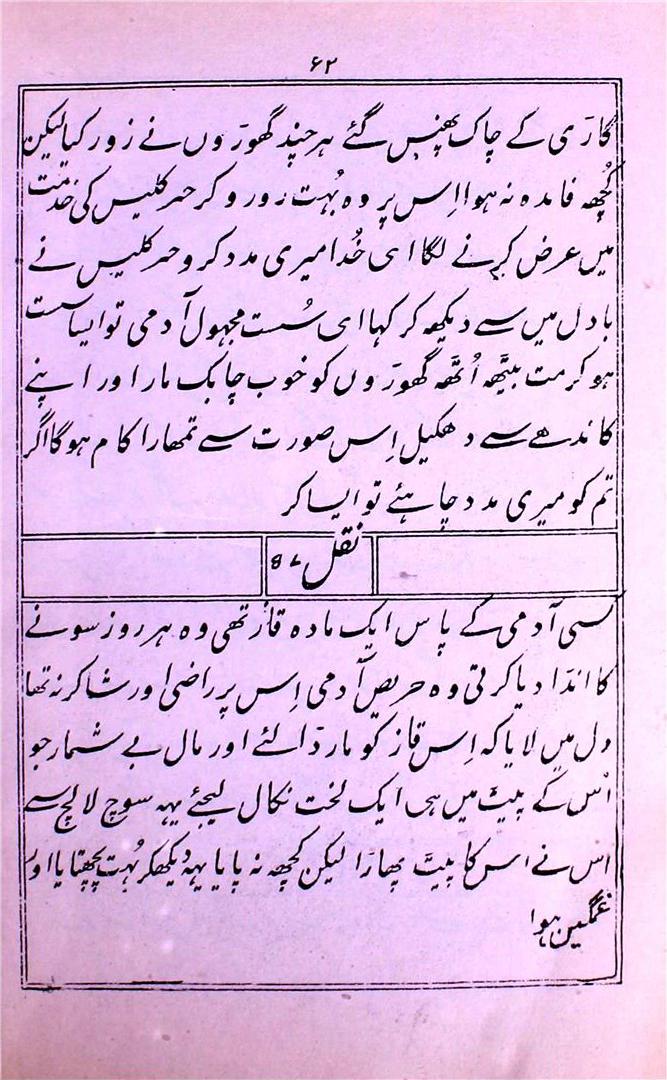 ۶۲
گارَی کے چاک پھنس گئے ہر چند گھورَوں نے زور کیا لیکن
کُچھ فائدہ نہ ہوا اِس پر وہ بُہت رور و کر حرکلیس کی خدمت
میں عرض کرنے لگا ای خُدا میری مدد کرو حرکلیس نے
بادل میں سے دیکھ کر کہا ای سُست مجہول آدمی تو ایسا ست
ہو کر مت بیتَّھ اُتَّھ گھورَوں کو خوب چابک مارا اور اپنے
کاندھے سے دھکیل اِس صورت سے تمھارا کام ہوگا اگر
تم کو میری مدد چاہئے تو ایسا کر
نقل 87
کسی آدمی کے پاس ایک مادہ قاز تھی وہ ہر روز سونے
کا اندَا دیا کرتی وہ حریص آدمی اِس پر راضی اور شاکر نہ تھا
دل میں لایا کہ اِس قاز کو مار دَالئے اور مال بے شمار جو
اُس کے پیت میں ہی ایک لخت نکال لیجئے یہہ سوچ لالچ سے
اس نے اس کا پیتَ پھارَا لیکن کچھ نہ پایا یہہ دیکھکر بُہت پچھتایا اور
غمگین ہوا